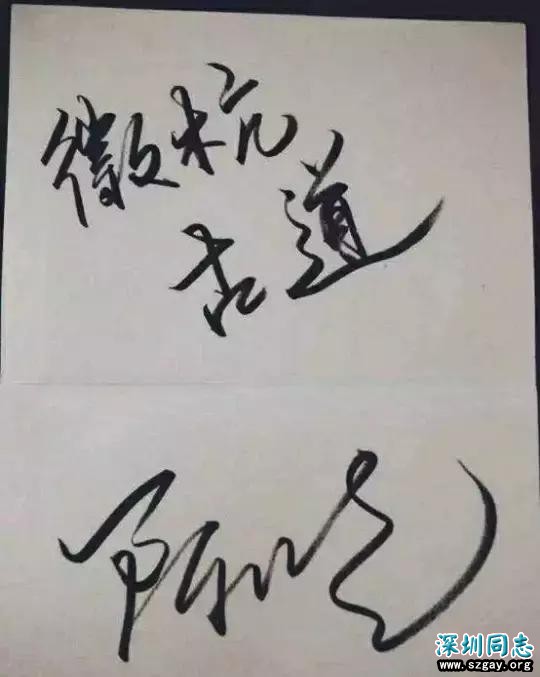 徽杭
古道
深圳同志
www.szgay.org